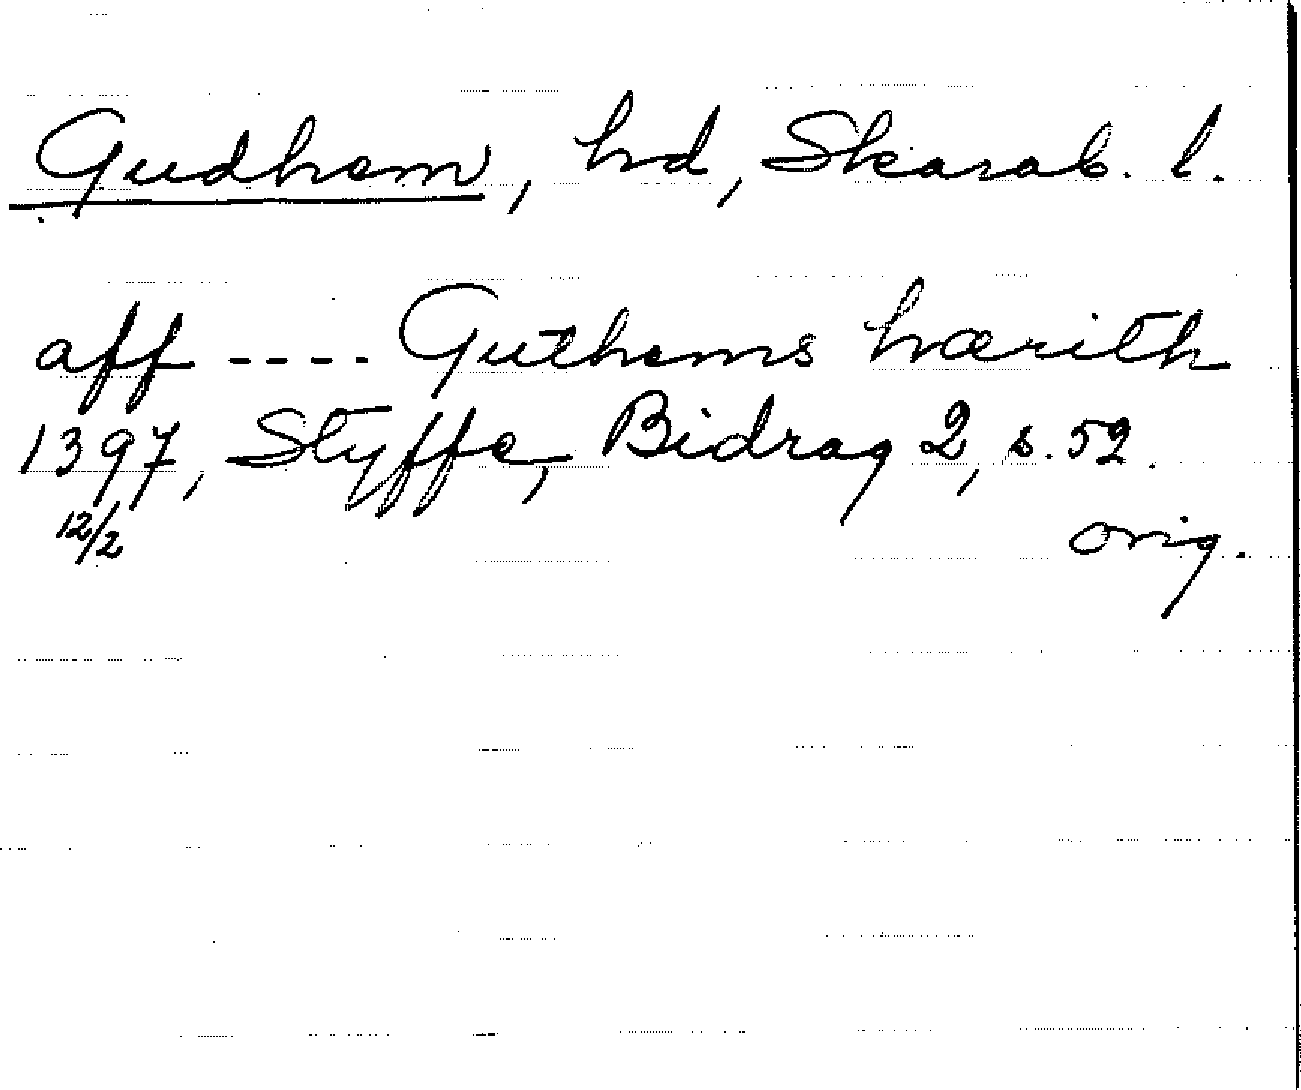 Gudhem, hd, Skarab. l.
aff ---- Guthems hærith
1397, Styffe, Bidrag 2, s. 52.
12/2 orig.